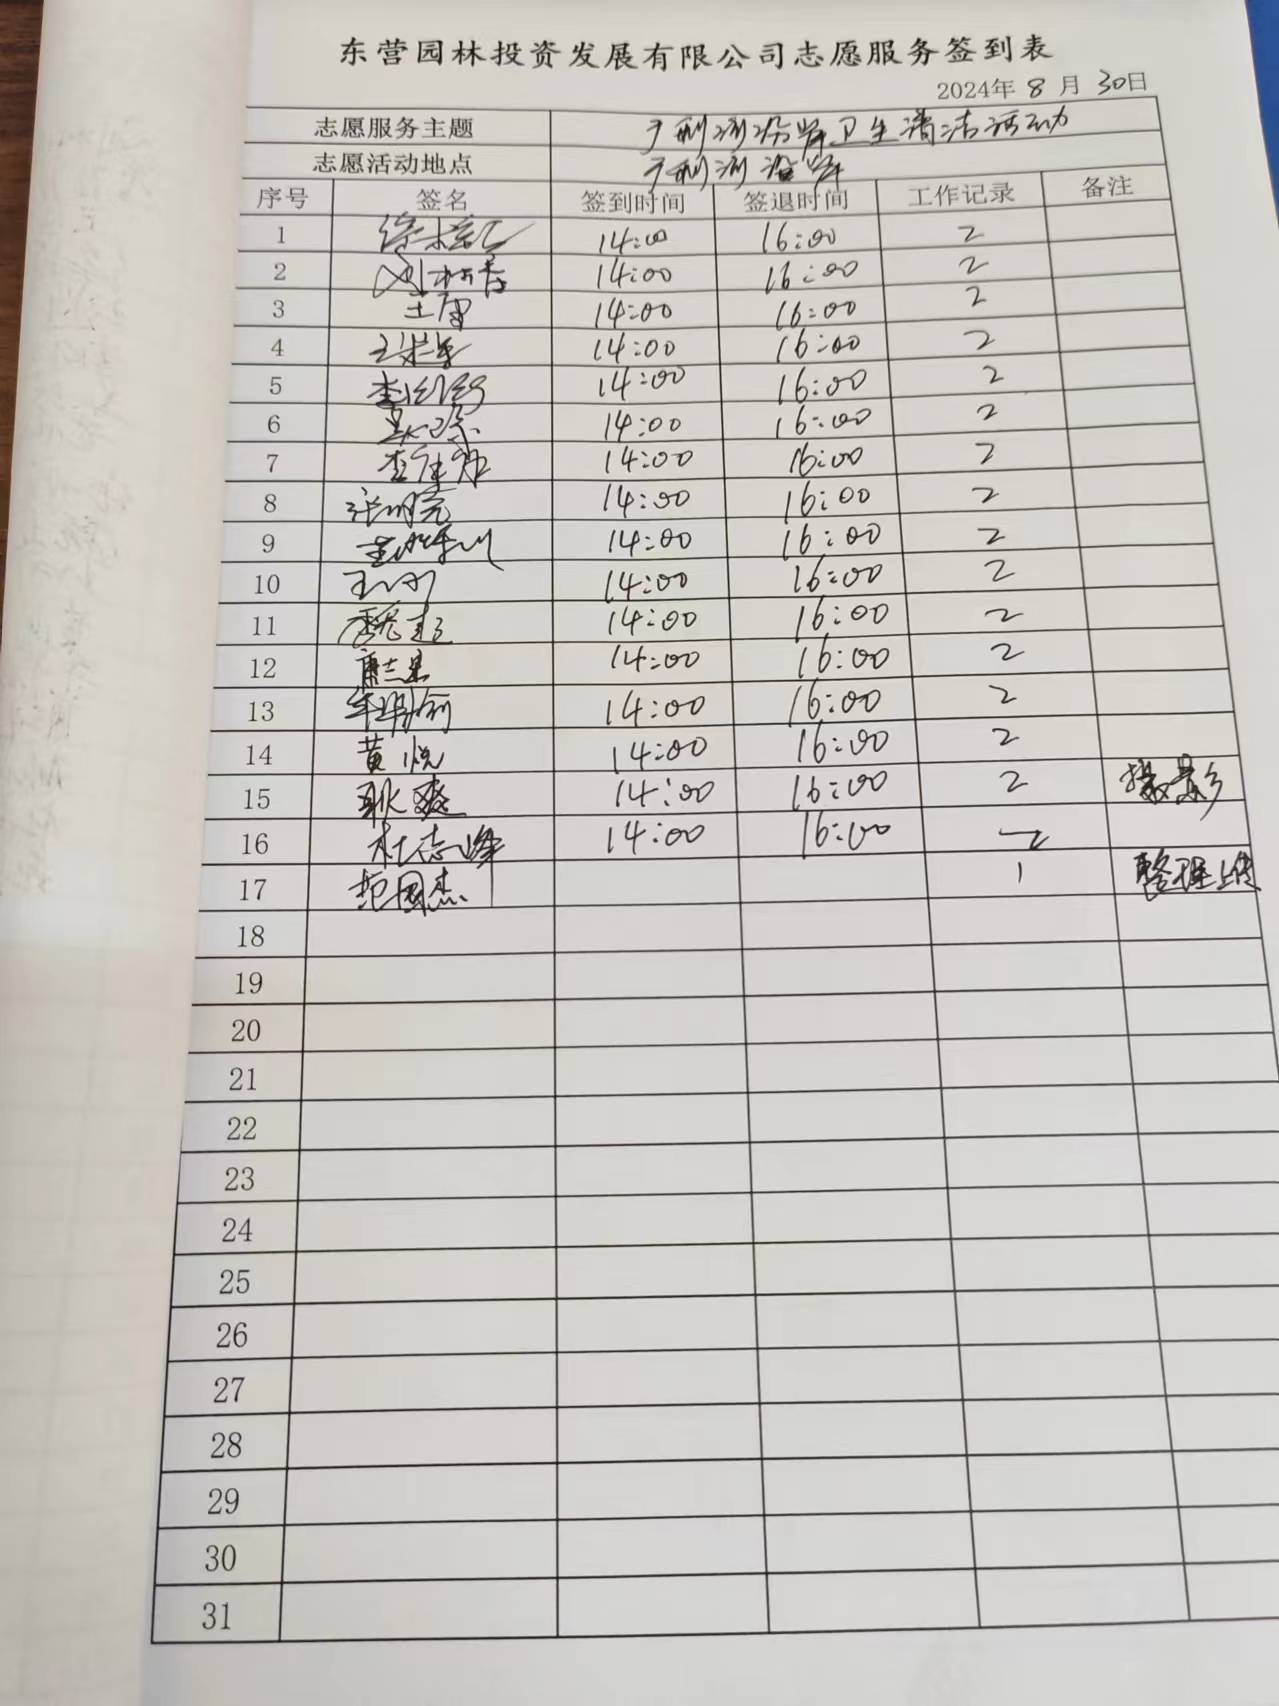 东营园林投资发展有限公司志愿服务签到表
2024年 8 月 30日
志愿服务主题 广利河沿岸卫生清洁活动
志愿活动地点 广利河沿岸
序号 签名 签到时间 签退时间 工作记录 备注
1 14:00 16:00 2
2 14:00 16:00 2
3 14:00 16:00 2
4 14:00 16:00 2
5 14:00 16:00 2
6 14:00 16:00 2
7 14:00 16:00 2
8 张明亮 14:00 16:00 2
9 14:00 16:00 2
10 14:00 16:00 2
11 14:00 16:00 2
12 14:00 16:00 2
13 14:00 16:00 2
14 黄悦 14:00 16:00 2
15 耿爽 14:00 16:00 2 摄影
16 杜志峰 14:00 16:00 2
17 范国杰 1 整理上传
18
19
20
21
22
23
24
25
26
27
28
29
30
31